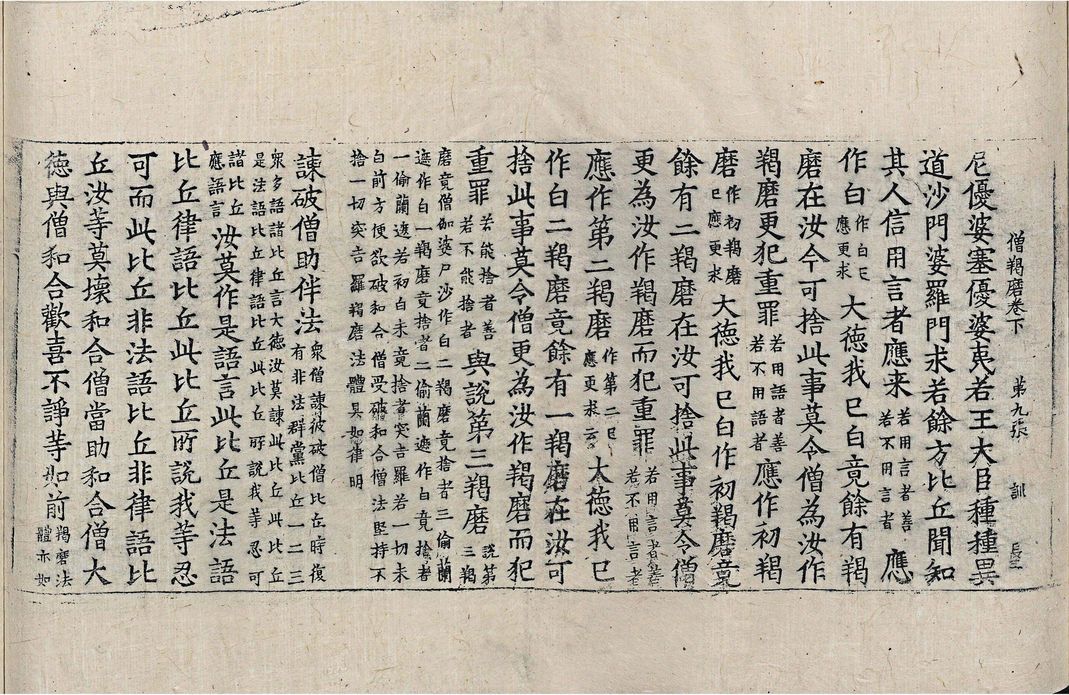 僧羯磨卷下 第九張 訓
尼優婆塞優婆夷若王大臣種種異
道沙門婆羅門求若餘方比丘聞知
其人信用言者應来若用言者善若不用言者應
作白作白已應更求大德我已白竟餘有羯
磨在汝今可捨此事莫令僧為汝作
羯磨更犯重罪若用語者善若不用語者應作初羯
磨作初羯磨已應更求大德我已白作初羯磨竟
餘有二羯磨在汝可捨此事莫令僧
更為汝作羯磨而犯重罪若用言者善若不用言者
應作第二羯磨作第二已應更求云大德我已
作白二羯磨竟餘有一羯磨在汝可
捨此事莫令僧更為汝作羯磨而犯
重罪若能捨者善若不能捨者與說第三羯磨說第三羯
磨竟僧伽婆尸沙作白二羯磨竟捨者三偷蘭
遮作白一羯磨竟捨者二偷蘭遮作白竟捨者
一偷蘭遮若初白未竟捨者突吉羅若一切未
白前方便欲破和合僧受破和合僧法堅持不
捨一切突吉羅羯磨法體具如律明
諫破僧助伴法衆僧諫彼破僧比丘時復有非法群黨比丘一二三
衆多語諸比丘言大德汝莫諫此比丘此比丘
是法語比丘律語比丘此比丘所說我等忍可
諸比丘應語言汝莫作是語言此比丘是法語
比丘律語比丘此比丘所說我等忍
可而此比丘非法語比丘非律語比
丘汝等莫壞和合僧當助和合僧大
德與僧和合歡喜不諍等如前羯磨法體亦如